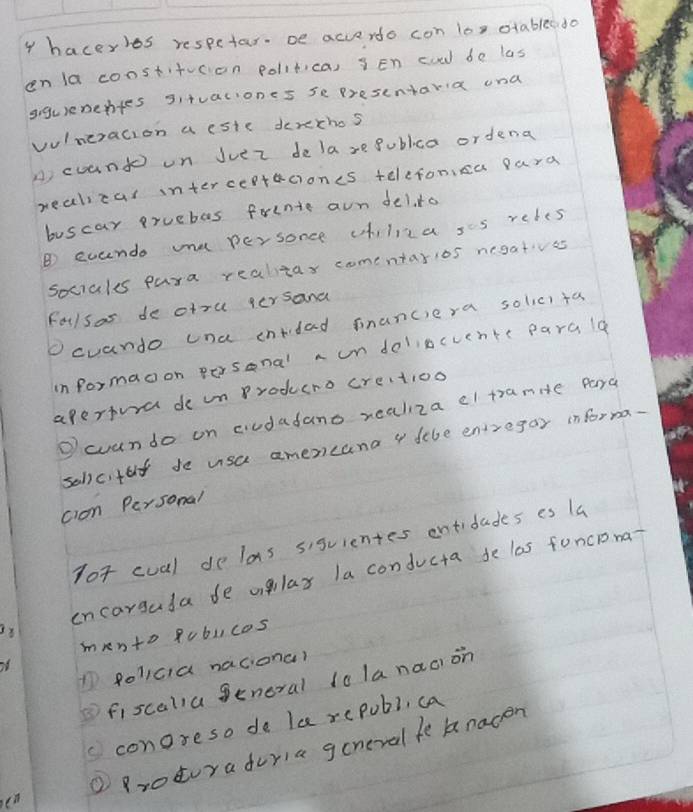 y hacerlos respetar. De acuerdo con los otablecido
en la constitucion politica, ¿ En cual de las
siguienentes situaciones se presentaria una
vulneracion a este derechos
A) cuando un Juez de la republica ordena
realizar interceptaciones telefonica para
buscar pruebas frente aun delito
B) cuando una persona utiliza sus redes
sociales para realizar comentarios negativos
falsos de otra persona
C) cuando una entidad financiera solicita
informacion personal a un delincuente para la
apertura de un producto creitioo
D) cuando un ciudadano realiza el tramite para
solicitud de visa americana y debe entregar informa-
cion personal
cual de las siguientes entidades es la
encargada de vigilar la conducta de los funciona-
miento publicos
A) policia nacional
B) fiscalia general de la nación
C) congreso de la republica
D) Procuraduria general de la nacion